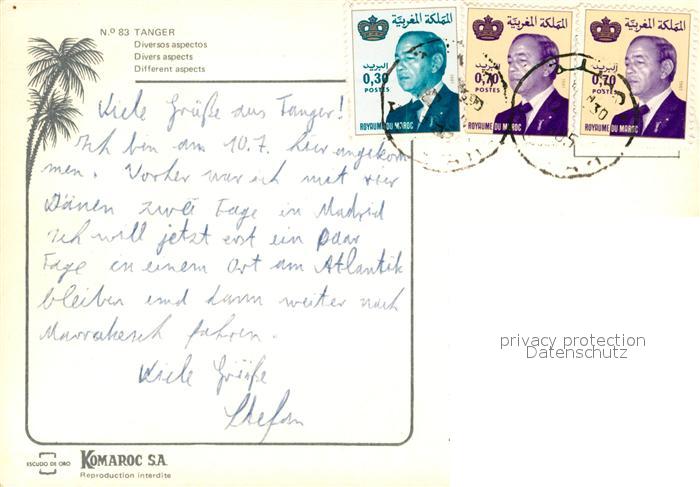 N.º 83 TANGER
Diversos aspectos
Divers aspects
Different aspects
المملكة المغربية
البريد
0,30
POSTES
ROYAUME DU MAROC
المملكة المغربية
البريد
0,70
POSTES
ROYAUME DU MAROC
المملكة المغربية
البريد
0,70
POSTES
ROYAUME DU MAROC
Viele Grüße aus Tanger!
Ich bin am 10.7. hier angekom
men. Vorher war ich mit vier
Dänen zwei Tage in Madrid
Ich will jetzt erst ein paar
Tage in einem Ort am Atlantik
bleiben und dann weiter nach
Marrakesch fahren.
Viele Grüße
Stefan
privacy protection
Datenschutz
ESCUDO DE ORO
KOMAROC S.A.
Reproduction interdite